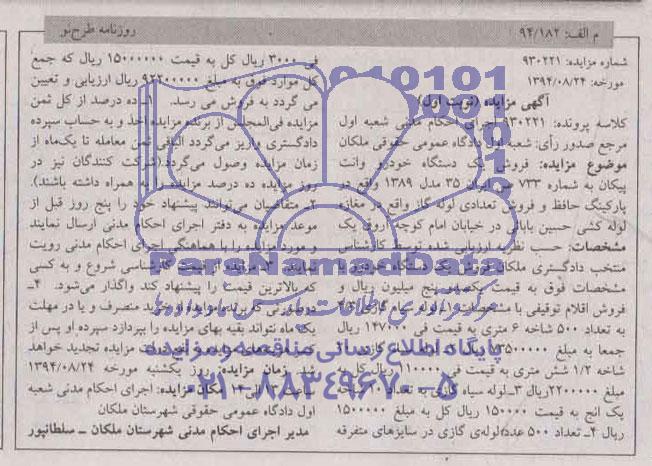 م الف: ۹۴/۱۸۲
روزنامه طرح‌نو
شماره مزایده: ۹۳۰۲۲۱
مورخه: ۱۳۹۴/۰۸/۲۴
آگهی مزایده (نوبت اول)
کلاسه پرونده: ۹۳۰۲۲۱ اجرای احکام مدنی شعبه اول
مرجع صدور رأی: شعبه اول دادگاه عمومی حقوقی ملکان
موضوع مزایده: فروش یک دستگاه خودرو وانت
پیکان به شماره ۷۳۳ ایران ۳۵ مدل ۱۳۸۹ واقع در
پارکینگ حافظ و فروش تعدادی لوله گاز واقع در مغازه
لوله کشی حسین بابائی در خیابان امام کوچه اروق یک
مشخصات: حسب نظریه ارزیابی شده توسط کارشناس
منتخب دادگستری ملکان فروش یک دستگاه خودرو با
مشخصات فوق به قیمت پنج میلیون ریال و
فروش اقلام توقیفی با مشخصات ۱ـ لوله گازی
به تعداد ۵۰۰ شاخه ۶ متری به قیمت فی ۱۴۷۰۰۰ ریال
جمعا به مبلغ ۷۳۵۰۰۰۰۰ ریال
شاخه ۱/۲ شش متری به قیمت فی ۱۱۰۰۰۰ ریال کل به
۲۲۰۰۰۰۰ ریال ۳ـ لوله سیاه گازی به تعداد شاخه
یک انج به قیمت ۱۵۰۰۰۰ ریال کل به مبلغ ۱۵۰۰۰۰۰
ریال ۴ـ تعداد ۵۰۰ عدد لوله‌ی گازی در سایزهای متفرقه
فی ۳۰۰۰ ریال کل به قیمت ۱۵۰۰۰۰۰۰ ریال که جمع
کل موارد فوق به مبلغ ۹۲۲۰۰۰۰۰ ریال ارزیابی و تعیین
می گردد به فروش می رسد. ۱ـ ده درصد از کل ثمن
مزایده فی‌المجلس از برنده مزایده اخذ و به حساب سپرده
دادگستری واریز می‌گردد الباقی ثمن معامله تا یک‌ماه از
زمان مزایده وصول می‌گردد.(شرکت کنندگان نیز در
روز مزایده ده درصد مزایده را به همراه داشته باشند).
۲ـ متقاضیان می‌توانند پیشنهاد خود را پنج روز قبل از
موعد مزایده به دفتر اجرای احکام مدنی ارسال نمایند
و مورد مزایده را با هماهنگی اجرای احکام مدنی رویت
نمایند. ۳ـ مزایده از قیمت کارشناسی شروع و به کسی
که بالاترین قیمت را پیشنهاد کند واگذار می‌شود. ۴ـ
درصورتی که برنده مزایده از خرید منصرف و یا در مهلت
یک‌ماه نتواند بقیه بهای مزایده را بپردازد سپرده او پس از
کسر هزینه‌های مزایده مزایده تجدید خواهد
شد. زمان مزایده: روز یکشنبه مورخه ۱۳۹۴/۰۸/۲۴
ساعت مکان مزایده: اجرای احکام مدنی شعبه
اول دادگاه عمومی حقوقی شهرستان ملکان
مدیر اجرای احکام مدنی شهرستان ملکان ـ سلطانپور
ParsNamadData
پایگاه اطلاع رسانی مناقصه و مزایده
۰۲۱-۸۸۳۴۹۶۷۰-۵